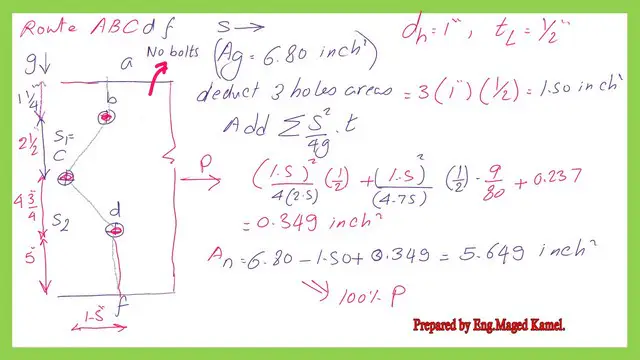 Route ABCdf
S →
dh = 1", tL = 1/2"
g↓
a
No bolts
(Ag = 6.80 inch²)
1 1/4"
b
deduct 3 holes areas = 3(1")(1/2) = 1.50 inch²
2 1/2
S1=
C
Add Σ S²/4g . t
P
(1.5)²/4(2.5) (1/2) + (1.5)²/(4.75) (1/2) . 9/80 + 0.237
4 3/4
S2
d
= 0.349 inch²
5"
An = 6.80 - 1.50 + 0.349 = 5.649 inch²
f
100% P
1.5"
Prepared by Eng.Maged Kamel.